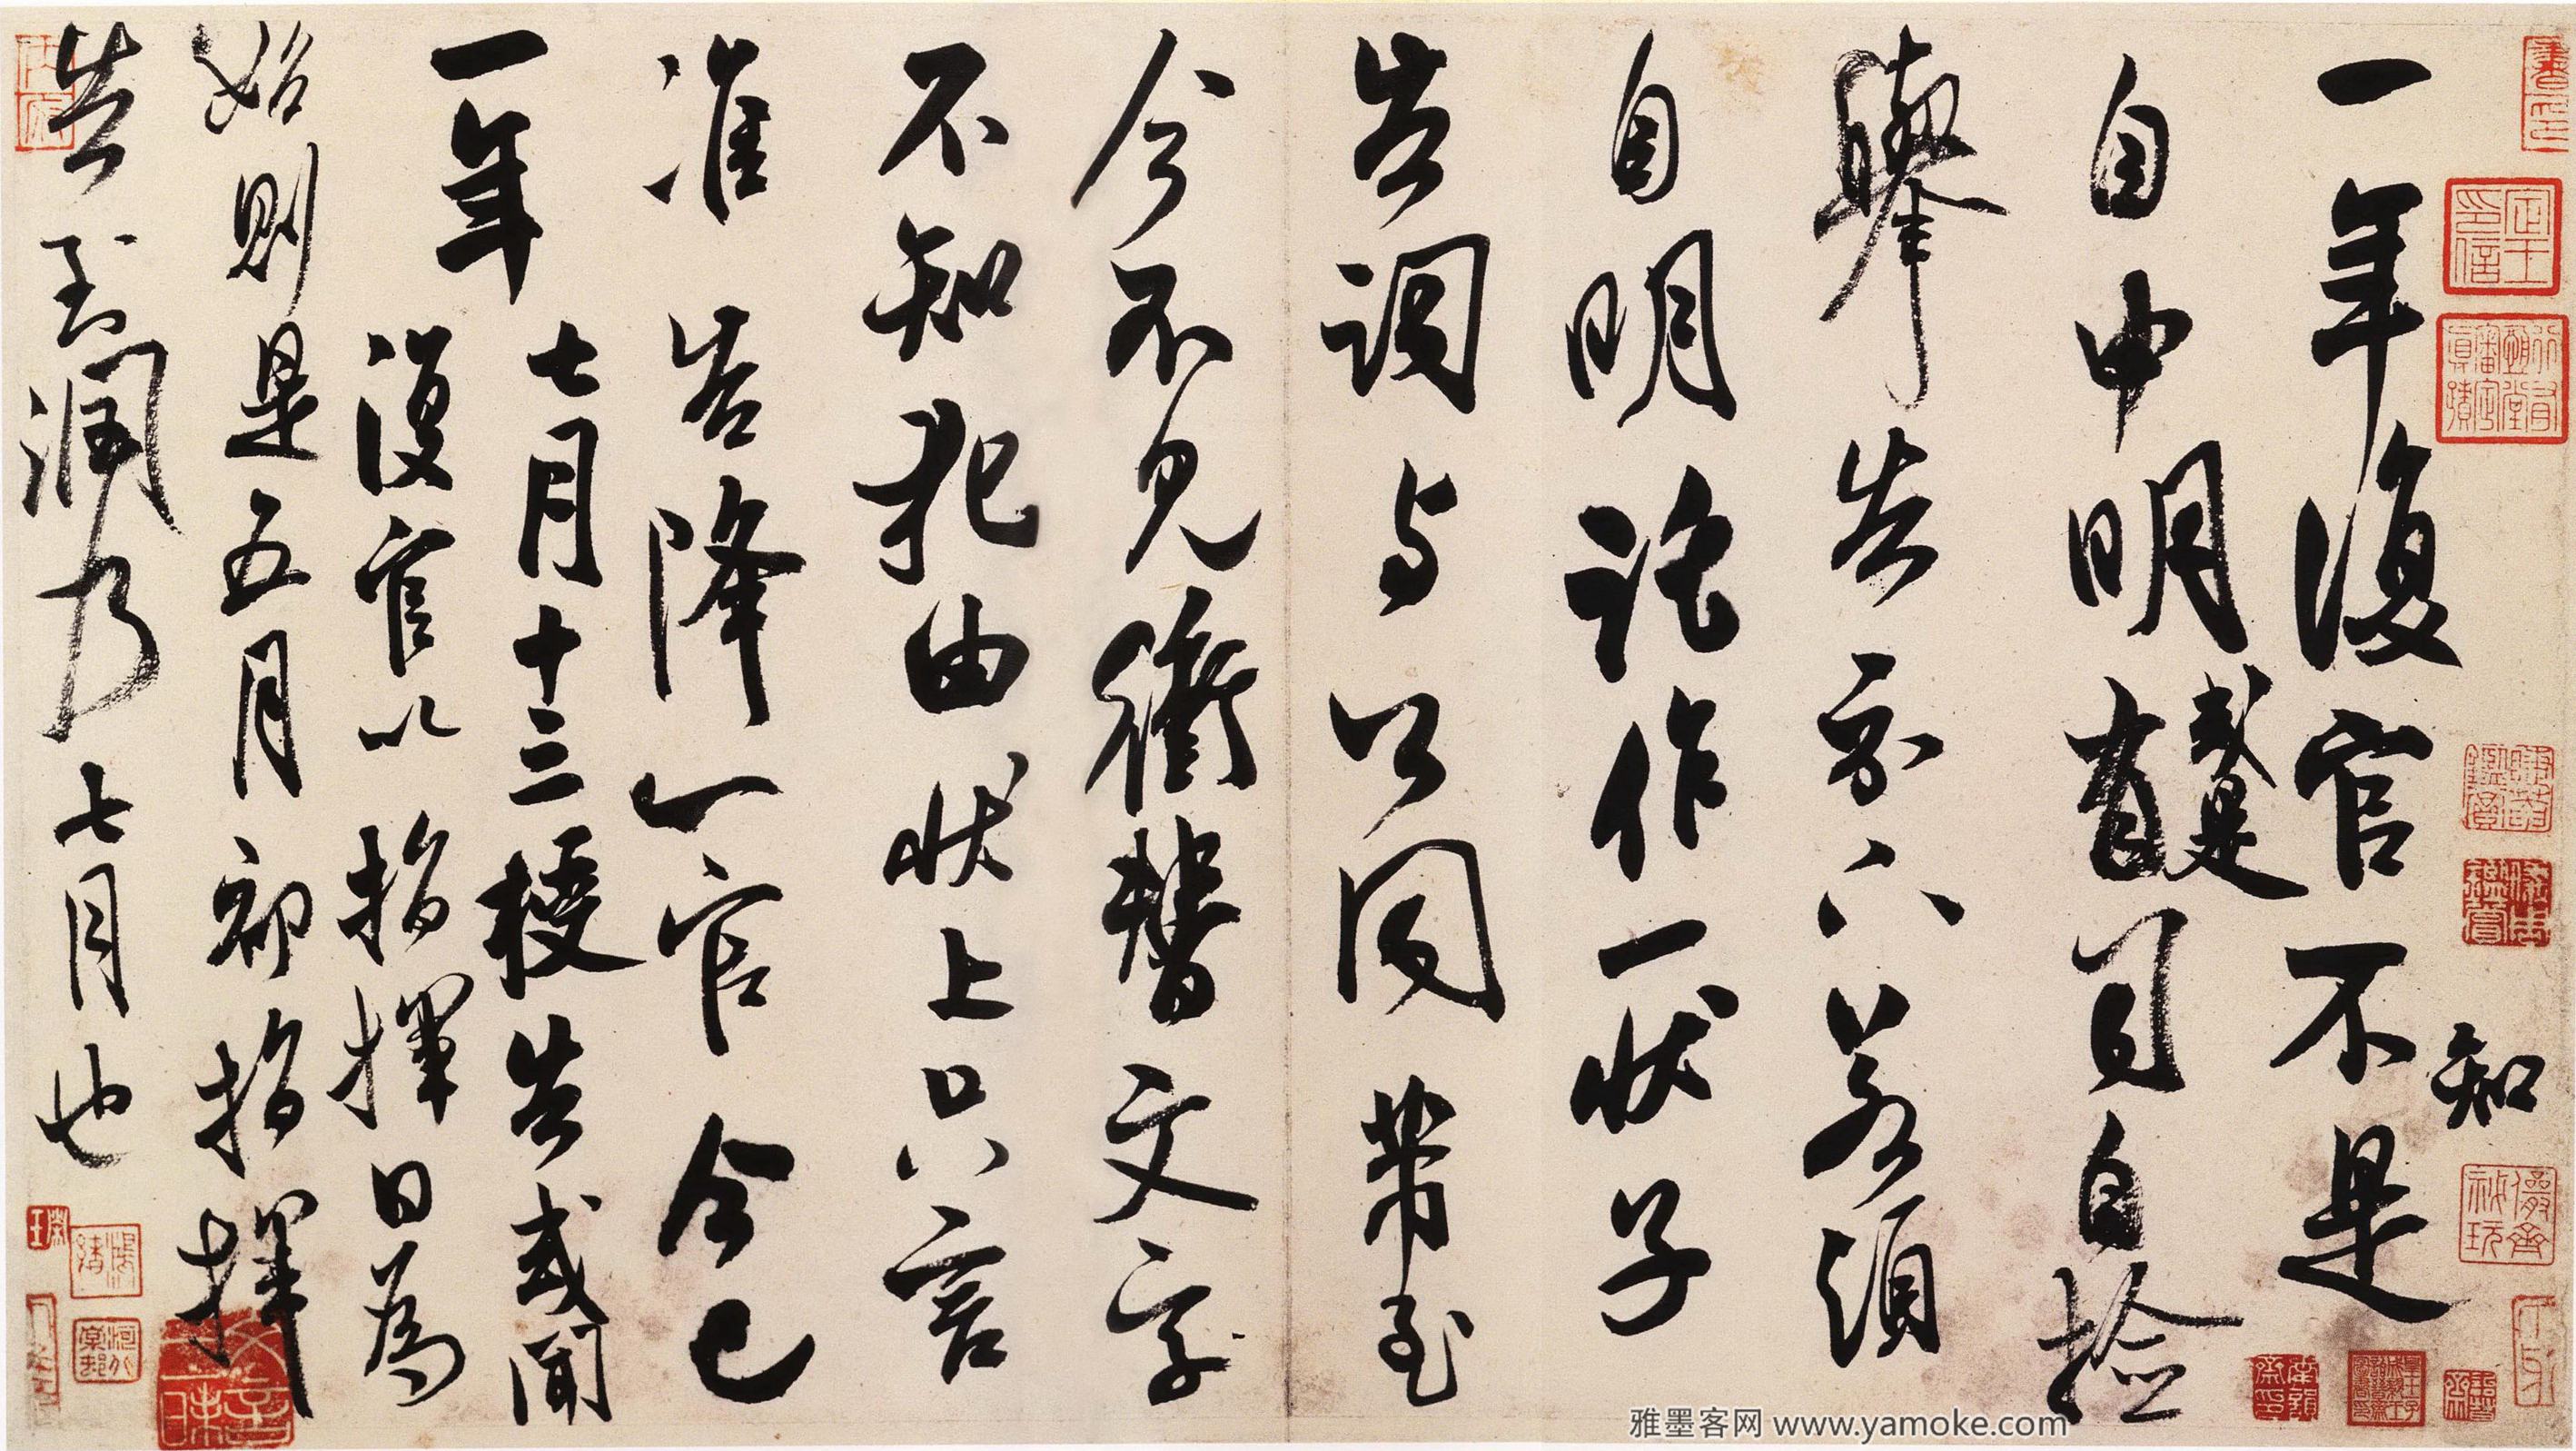 知
一年復官不是
自申明或是有司自檢
舉告示下若須
自明託作一状子
告詞与公同帶至
今不見衝替文字
不知犯由状上只言
准告降一官今已
一年
七月十三授告或聞
復官以指揮日為
始則是五月初指揮
告到潤乃七月也
雅墨客网 www.yamoke.com